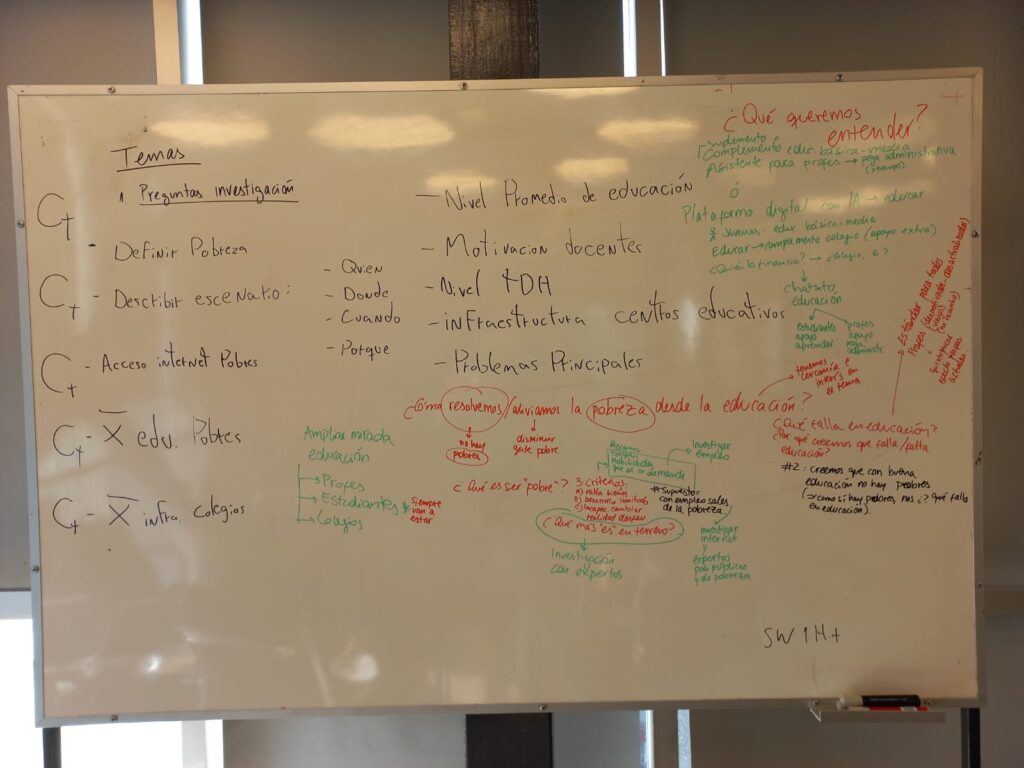 Temas
1 Preguntas investigación
C+ - Definir Pobreza
C+ - Describir escenario:
- Quien
- Donde
- Cuando
- Porque
C+ - Acceso internet Pobres
C+ - X edu. Pobres
C+ - X infra. Colegios
- Nivel Promedio de educación
- Motivacion docentes
- Nivel TDH
- infraestructura centros educativos
- Problemas Principales
¿Qué queremos
entender?
Suplemento
Complemento educ. básica-media
Asistente para profes → pega administrativa
ó
Plataforma digital con IA → educar
Jóvenes: educ. básica-media
Educar → complemento colegio (apoyo extra)
¿Quién lo financia? → Colegio,
chatsito
educación
estudiantes
apoyo
aprender
profes
apoyo
pega
administr
Estándar para todos
Profes
actuales
¿Cómo resolvemos/aliviamos la pobreza desde la educación?
no hay
pobres
disminuir
gente pobre
tenemos
cercanía e
interés en
el tema
¿Qué falla en educación?
¿Por qué creemos que falla/falta
educación?
#2: creemos que con buena
educación no hay pobres
(→ como si hay pobres nos ¿? Qué falla
en educación).
Ampliar mirada
educación
→ Profes
→ Estudiantes
→ Colegios
* Siempre
van a
estar
¿Qué es ser "pobre"?
3 criterios:
A) Falta bienes
B) Desarrollo limitado
C) Incapac. cambiar
realidad
habilidades
que es en demanda
Investigar
empleo
# Supuesto=
con empleo sales
de la pobreza
¿Qué más es en terreno?
Investigación
con expertos
investigar
internet
y
expertos
y de pobreza
5W 1H+